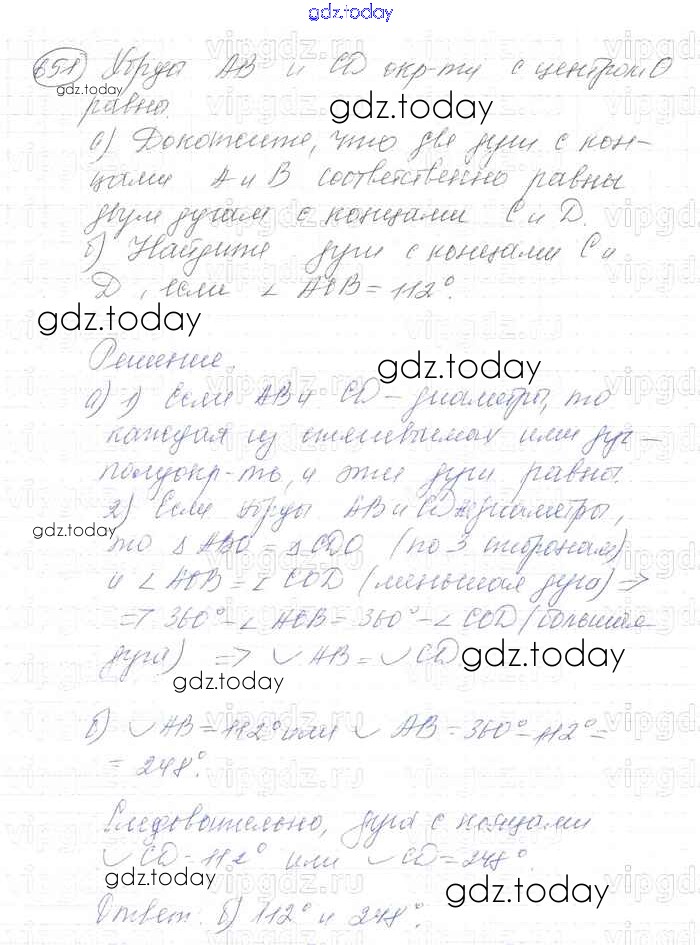 gdz.today
651 Хорды AB и CD окр-ти с центром O
gdz.today
равны.
gdz.today
а) Докажите, что две дуги с кон-
цами A и B соответственно равны
двум дугам с концами C и D.
б) Найдите дуги с концами C и
D, если ∠ AOB = 112°.
gdz.today
Решение.
gdz.today
а) 1) Если AB и CD - диаметры, то
каждая из стягиваемых ими дуг -
полуокр-ть, и эти дуги равны.
2) Если хорды AB и CD не диаметры,
gdz.today
то △ ABO = △ CDO (по 3 сторонам)
и ∠ AOB = ∠ COD (меньшая дуга) =>
=> 360° - ∠ AOB = 360° - ∠ COD (большая
дуга) => ◡ AB = ◡ CD
gdz.today
gdz.today
б) ◡ AB = 112° или ◡ AB = 360° - 112° =
= 248°.
Следовательно, дуга с концами
◡ CD = 112° или ◡ CD = 248°.
gdz.today
gdz.today
Ответ: б) 112° и 248°.